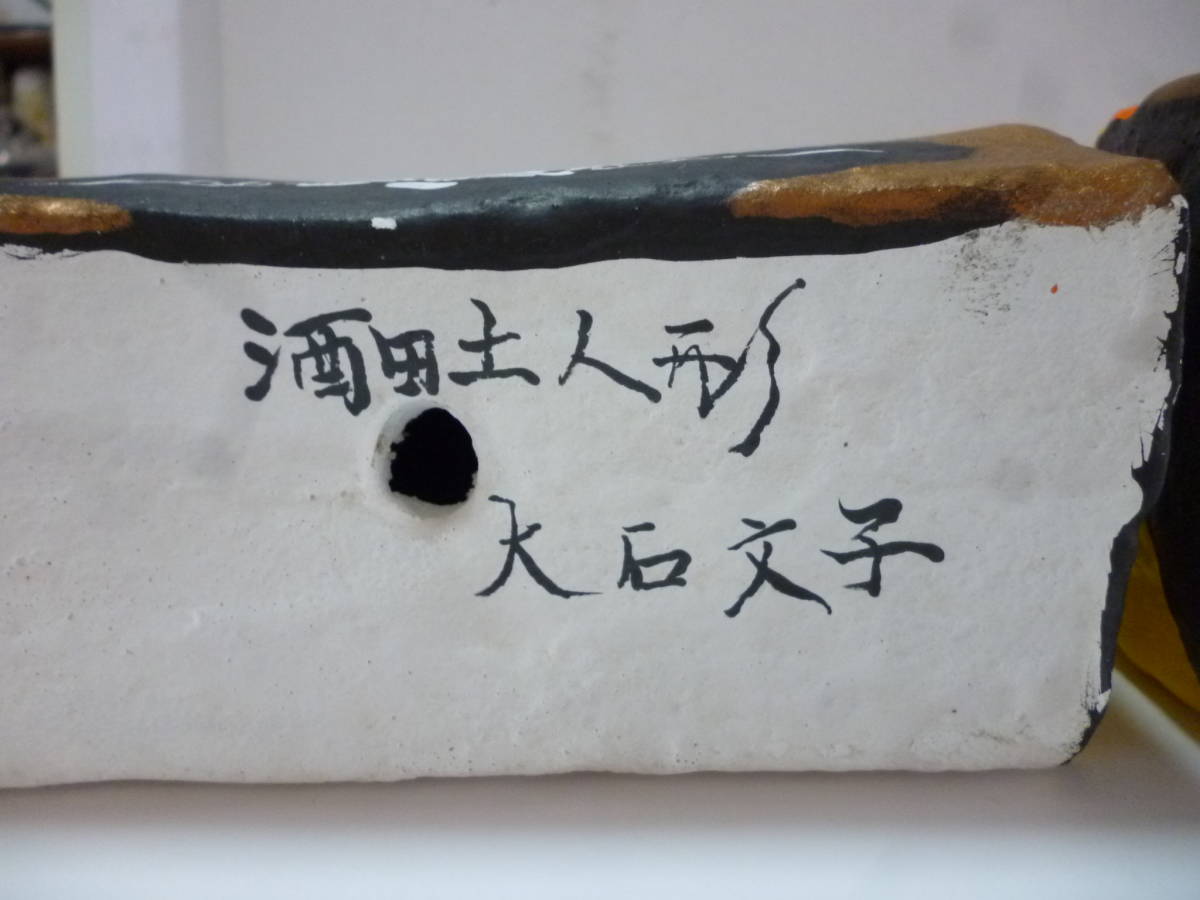 酒田土人形
大石文子